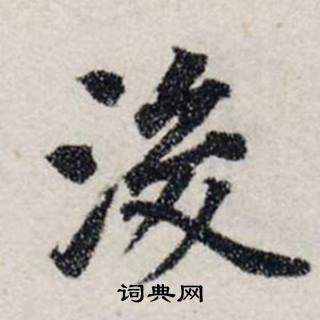 浚
词典网